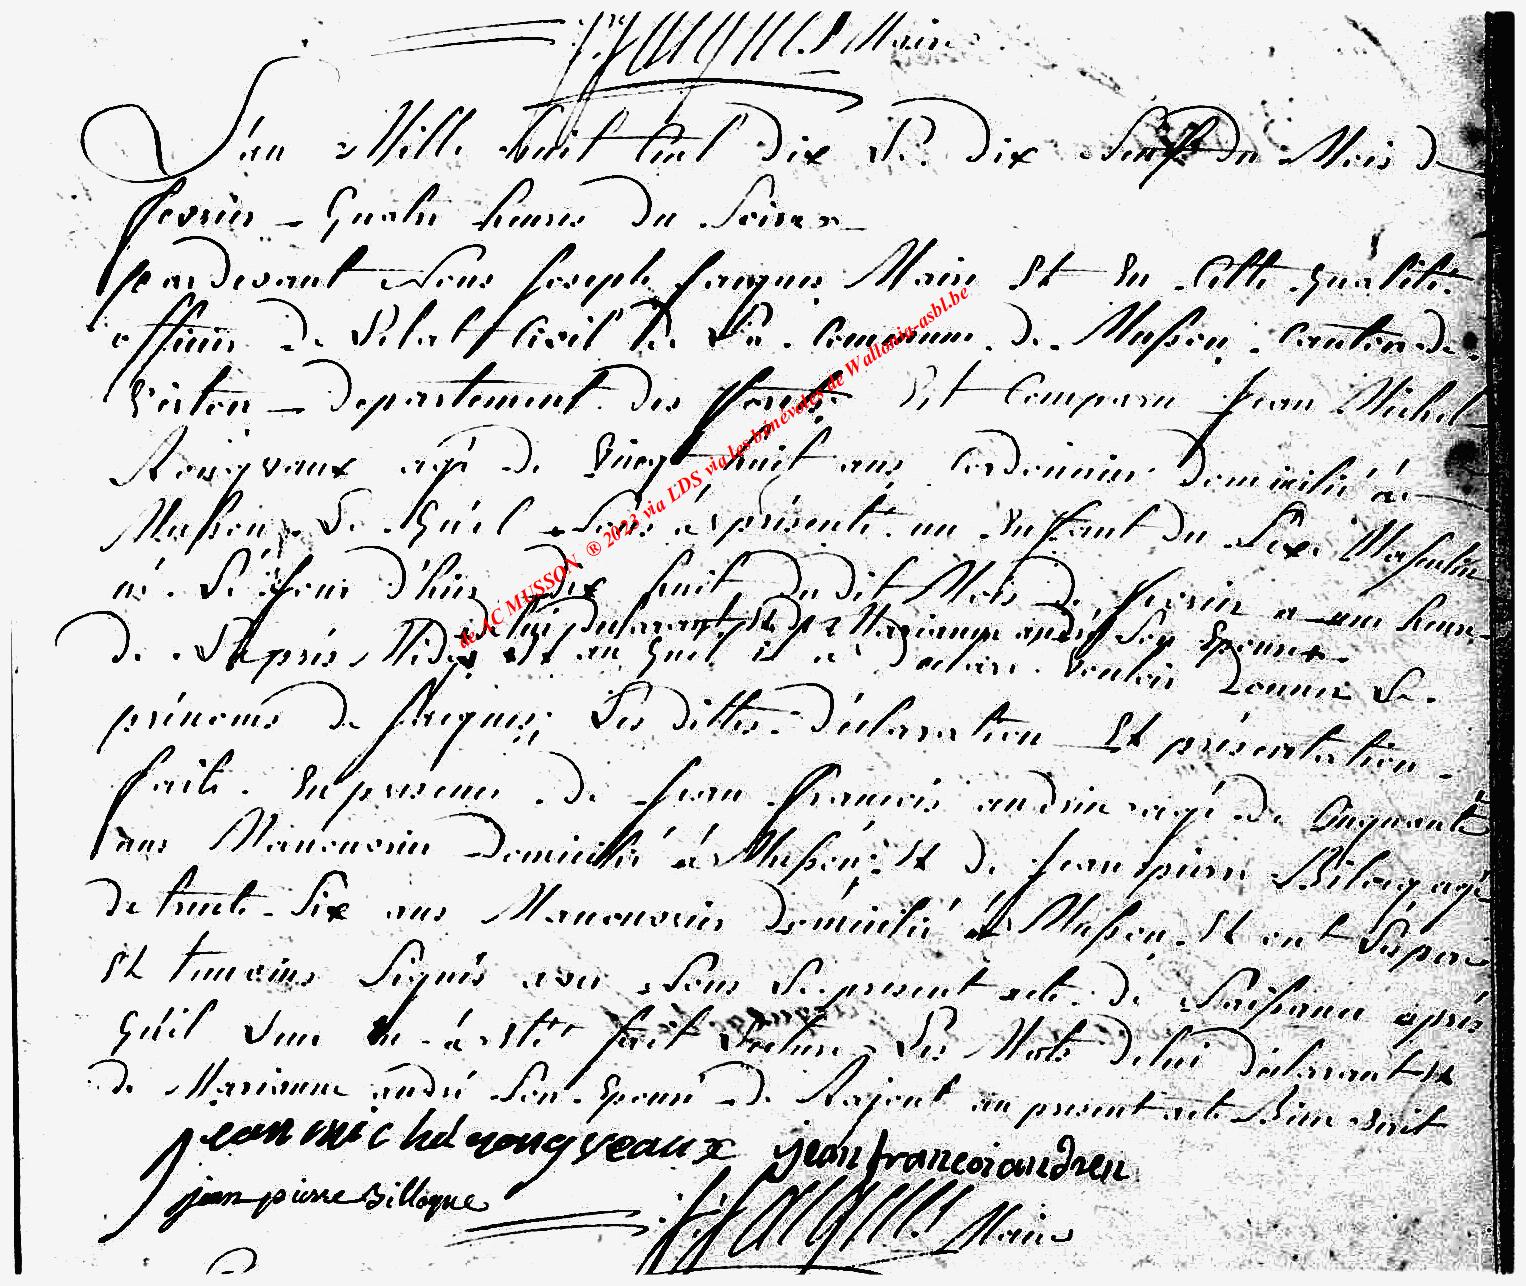 J. Jacques Maire
L'an Mille huit Cent dix Le dix Neuf du Mois de
fevrier - Quatre heures du Soire
pardevant Nous Joseph Jacques Maire Et En Cette Qualité
officier de L'Etat Civil de La Commune de Musson, Canton de
Virton - departement des Forets Est Comparu Jean Michel
Rougvaux agé de Vingt huit ans Cordonnier domicilié à
Musson, Le Quel Nous à présenté un Enfant du Sexe Masculin
né Le Jour d'hier dix huit du dit Mois de fevrier a une heure
de lui declarant Et de Marianne andré Son Epouse
de L'apres Midy Et au Quel il a declaré Vouloir donner Le
prénoms de Jacques; Les dittes déclaration Et présentation
faite En presence de Jean François andrin agé de Cinquante
ans Manouvrier domicilié à Musson; Et de Jean pierre Biloque agé
de trente Six ans Manouvrier domicilié à Musson, Et ont Les pere
Et temoins Signés avec Nous Le present acte de Naissance après
Qu'il Leur En à Eté fait Lecture, Les Mots de lui déclarant Et
de Marianne andré Son Epouse de Rajout au present acte Bien Vuit
jean michel rougveaux jean francoi andren
jean pierre Billoque
J. Jacques Maire
de AC MUSSON ® 2023 via LDS via les bénévoles de Wallonia-asbl.be